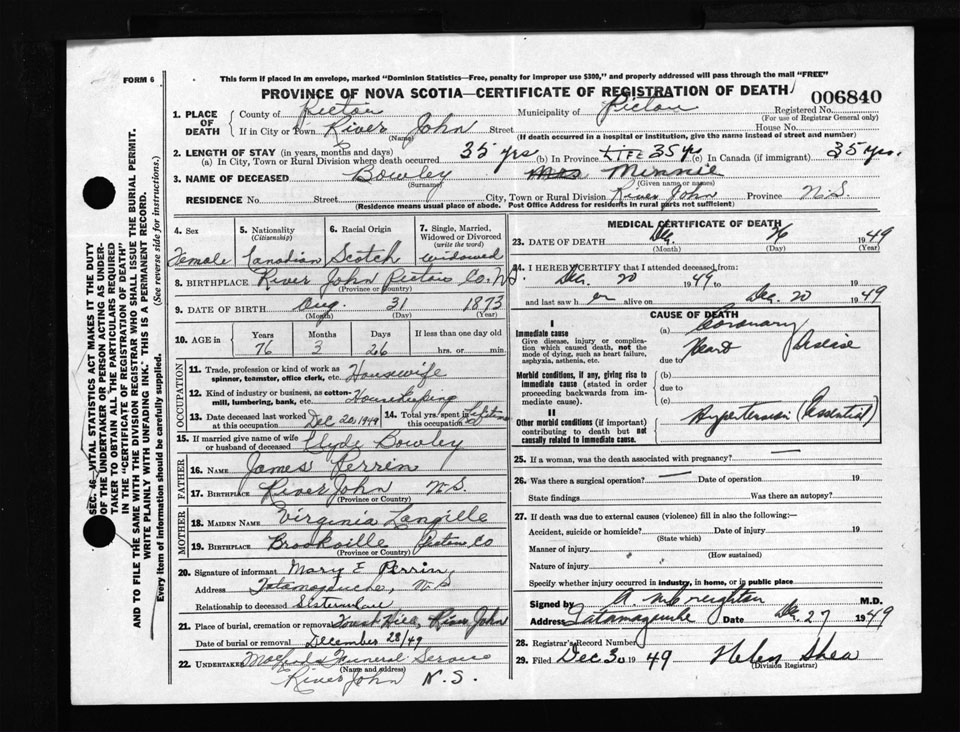 FORM 6
This form if placed in an envelope, marked "Dominion Statistics—Free, penalty for improper use $300," and properly addressed will pass through the mail "FREE"
PROVINCE OF NOVA SCOTIA—CERTIFICATE OF REGISTRATION OF DEATH
006840
1. PLACE OF DEATH
County of Pictou Municipality of Pictou Registered No.
(For use of Registrar General only)
If in City or Town River John Street House No.
(Name) (If death occurred in a hospital or institution, give the name instead of street and number)
2. LENGTH OF STAY (in years, months and days)
(a) In City, Town or Rural Division where death occurred 35 yrs (b) In Province LIFE 35 yrs (c) In Canada (if immigrant) 35 yrs.
3. NAME OF DECEASED Bowley Mrs Minnie
(Surname) (Given name or names)
RESIDENCE No. Street City, Town or Rural Division River John Province N.S.
(Residence means usual place of abode. Post Office Address for residents in rural parts not sufficient)
4. Sex 5. Nationality (Citizenship) 6. Racial Origin 7. Single, Married, Widowed or Divorced (write the word)
Female Canadian Scotch widowed
8. BIRTHPLACE River John Pictou Co. N.S.
(Province or Country)
9. DATE OF BIRTH Aug. 31 1873
(Month) (Day) (Year)
10. AGE in Years Months Days If less than one day old
76 3 26 hrs. or min.
OCCUPATION
11. Trade, profession or kind of work as spinner, teamster, office clerk, etc. Housewife
12. Kind of industry or business, as cotton-mill, lumbering, bank, etc. Housekeeping
13. Date deceased last worked at this occupation Dec 20 1949 14. Total yrs spent in this occupation Lifetime
15. If married give name of wife or husband of deceased Clyde Bowley
FATHER
16. NAME James Perrin
17. BIRTHPLACE River John N.S.
(Province or Country)
MOTHER
18. MAIDEN NAME Virginia Langille
19. BIRTHPLACE Brookville Pictou Co
(Province or Country)
20. Signature of informant Mary E Perrin
Address Tatamagouche, N.S
Relationship to deceased Sister in law
21. Place of burial, cremation or removal Hill, River John
Date of burial or removal December 28/49
22. Undertaker Funeral Service
(Name and address)
River John N.S.
MEDICAL CERTIFICATE OF DEATH
23. DATE OF DEATH Dec. 26 1949
(Month) (Day) (Year)
24. I HEREBY CERTIFY that I attended deceased from:
Dec. 20 1949 to
and last saw her alive on Dec. 20 1949
CAUSE OF DEATH
I
Immediate cause (a) Coronary
Give disease, injury or complication which caused death, not the mode of dying, such as heart failure, asphyxia, asthenia, etc. due to Heart Disease
Morbid conditions, if any, giving rise to immediate cause (stated in order proceeding backwards from immediate cause). (b)
due to
(c)
II
Other morbid conditions (if important) contributing to death but not causally related to immediate cause. Hypertension (Essential)
25. If a woman, was the death associated with pregnancy?
26. Was there a surgical operation? Date of operation 19
State findings Was there an autopsy?
27. If death was due to external causes (violence) fill in also the following:—
Accident, suicide or homicide? Date of injury 19
(State which)
Manner of injury
(How sustained)
Nature of injury
Specify whether injury occurred in industry, in home, or in public place
Signed by A. M. Creighton M.D.
Address Tatamagouche Date Dec 27 1949
28. Registrar's Record Number
29. Filed Dec 30 1949 Helen Shea
(Division Registrar)
SEC. 46—VITAL STATISTICS ACT MAKES IT THE DUTY
OF THE UNDERTAKER OR PERSON ACTING AS UNDER-
TAKER TO OBTAIN ALL THE PARTICULARS REQUIRED
IN THE "CERTIFICATE OF REGISTRATION OF DEATH"
AND TO FILE THE SAME WITH THE DIVISION REGISTRAR WHO SHALL ISSUE THE BURIAL PERMIT.
WRITE PLAINLY WITH UNFADING INK. THIS IS A PERMANENT RECORD.
Every item of information should be carefully supplied. (See reverse side for instructions.)